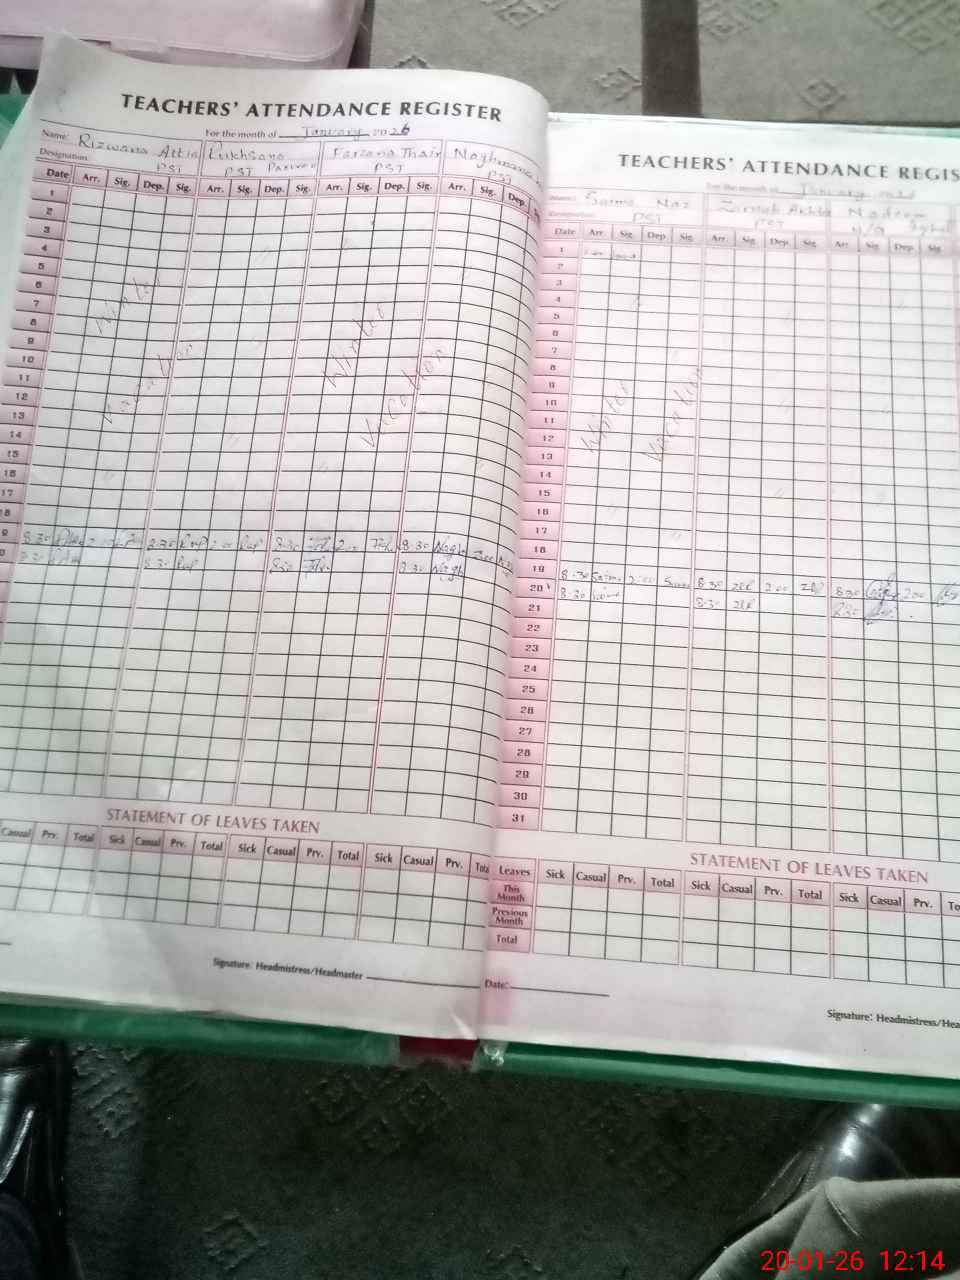 TEACHERS' ATTENDANCE REGISTER
For the month of January 2026
Name: Rizwana Attia Rukhsana Farzana Thair
Designation: PST PST Parveen PST PST
Date Arr. Sig. Dep. Sig. Arr. Sig. Dep. Sig. Arr. Sig. Dep. Sig. Arr. Sig. Dep.
1
2
3
4
5
6
7
8
9
10
11
12
13
14
15
16
17
18
Winter
Vacation
Winter
Vacation
9 8:30 8:30 2:00 8:30 8:30 Nagh
8:30 8:30 8:30 8:30 Nagh
STATEMENT OF LEAVES TAKEN
Casual Prv. Total Sick Casual Prv. Total Sick Casual Prv. Total Sick Casual Prv.
Signature: Headmistress/Headmaster
TEACHERS' ATTENDANCE REGIS
For the month of January
Name: Saima Naz Nadeem
Designation: PST PST N/A
Date Arr. Sig. Dep. Sig. Arr. Sig. Dep. Sig. Arr. Sig. Dep. Sig.
1
2
3
4
5
6
7
8
9
10
11
12
13
14
15
16
17
18
Winter
Vacation
19 8:30 Saima 2:00 Saima 8:30 ZER 2:00 ZER 8:30 2:00
20 8:30 Saima 8:30 ZER 8:30
21
22
23
24
25
26
27
28
29
30
31
STATEMENT OF LEAVES TAKEN
Leaves Sick Casual Prv. Total Sick Casual Prv. Total Sick Casual Prv. To
This Month
Previous Month
Total
Date:
Signature: Headmistress/Hea
20-01-26 12:14